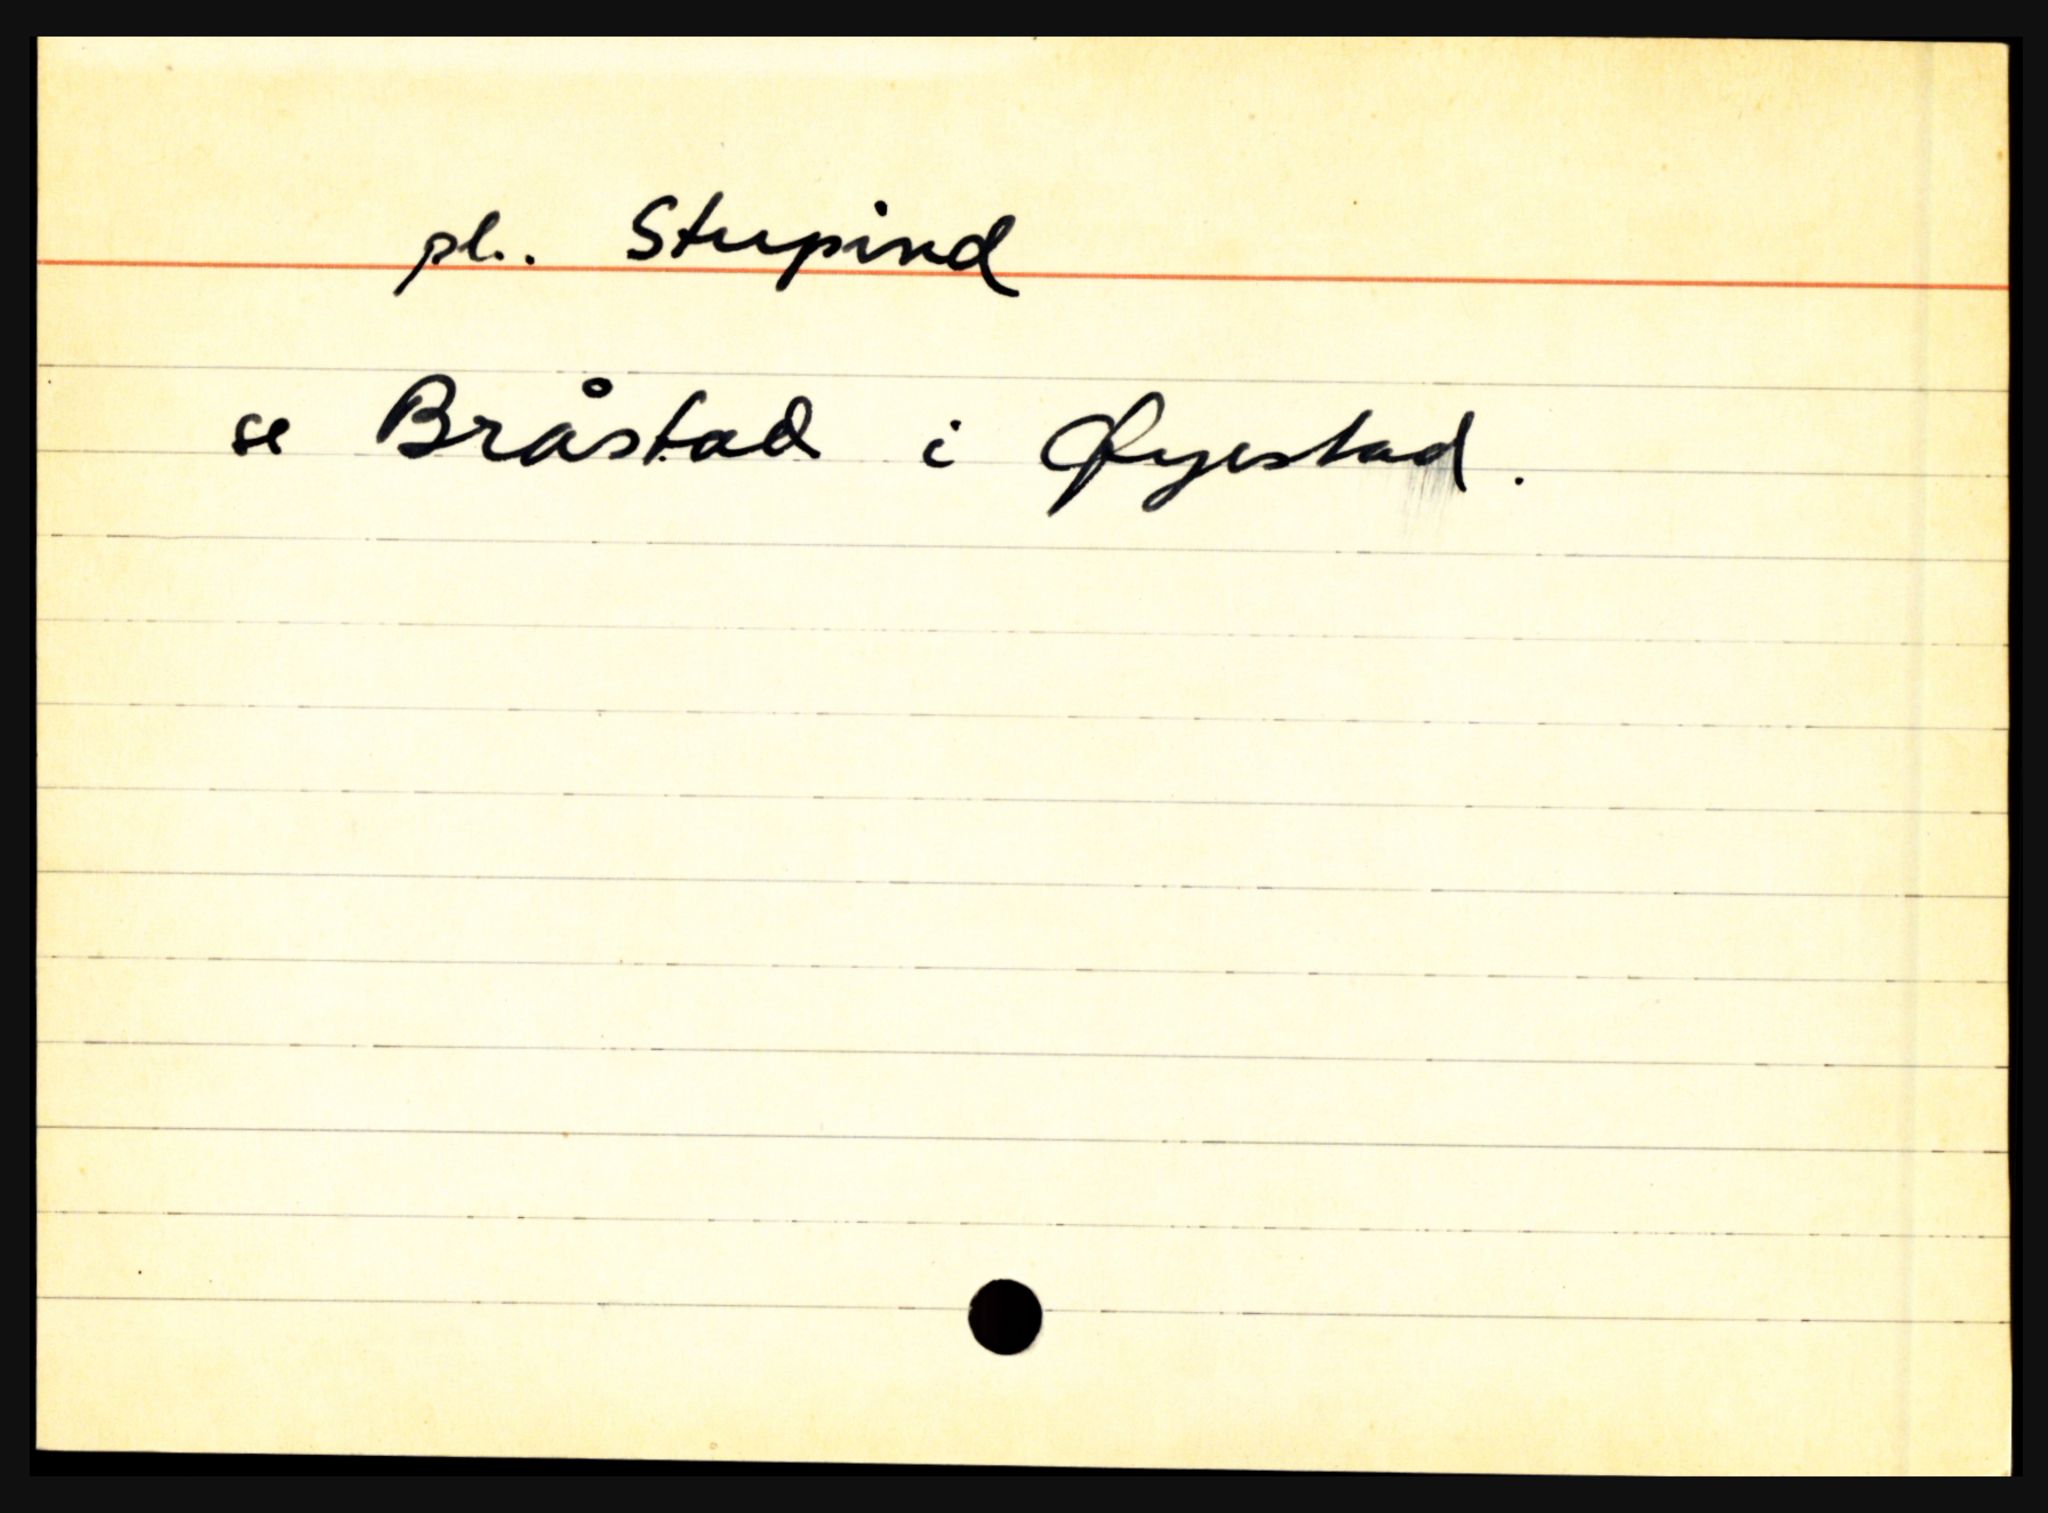 pl. Stupind
se Bråstad i Øyestad.